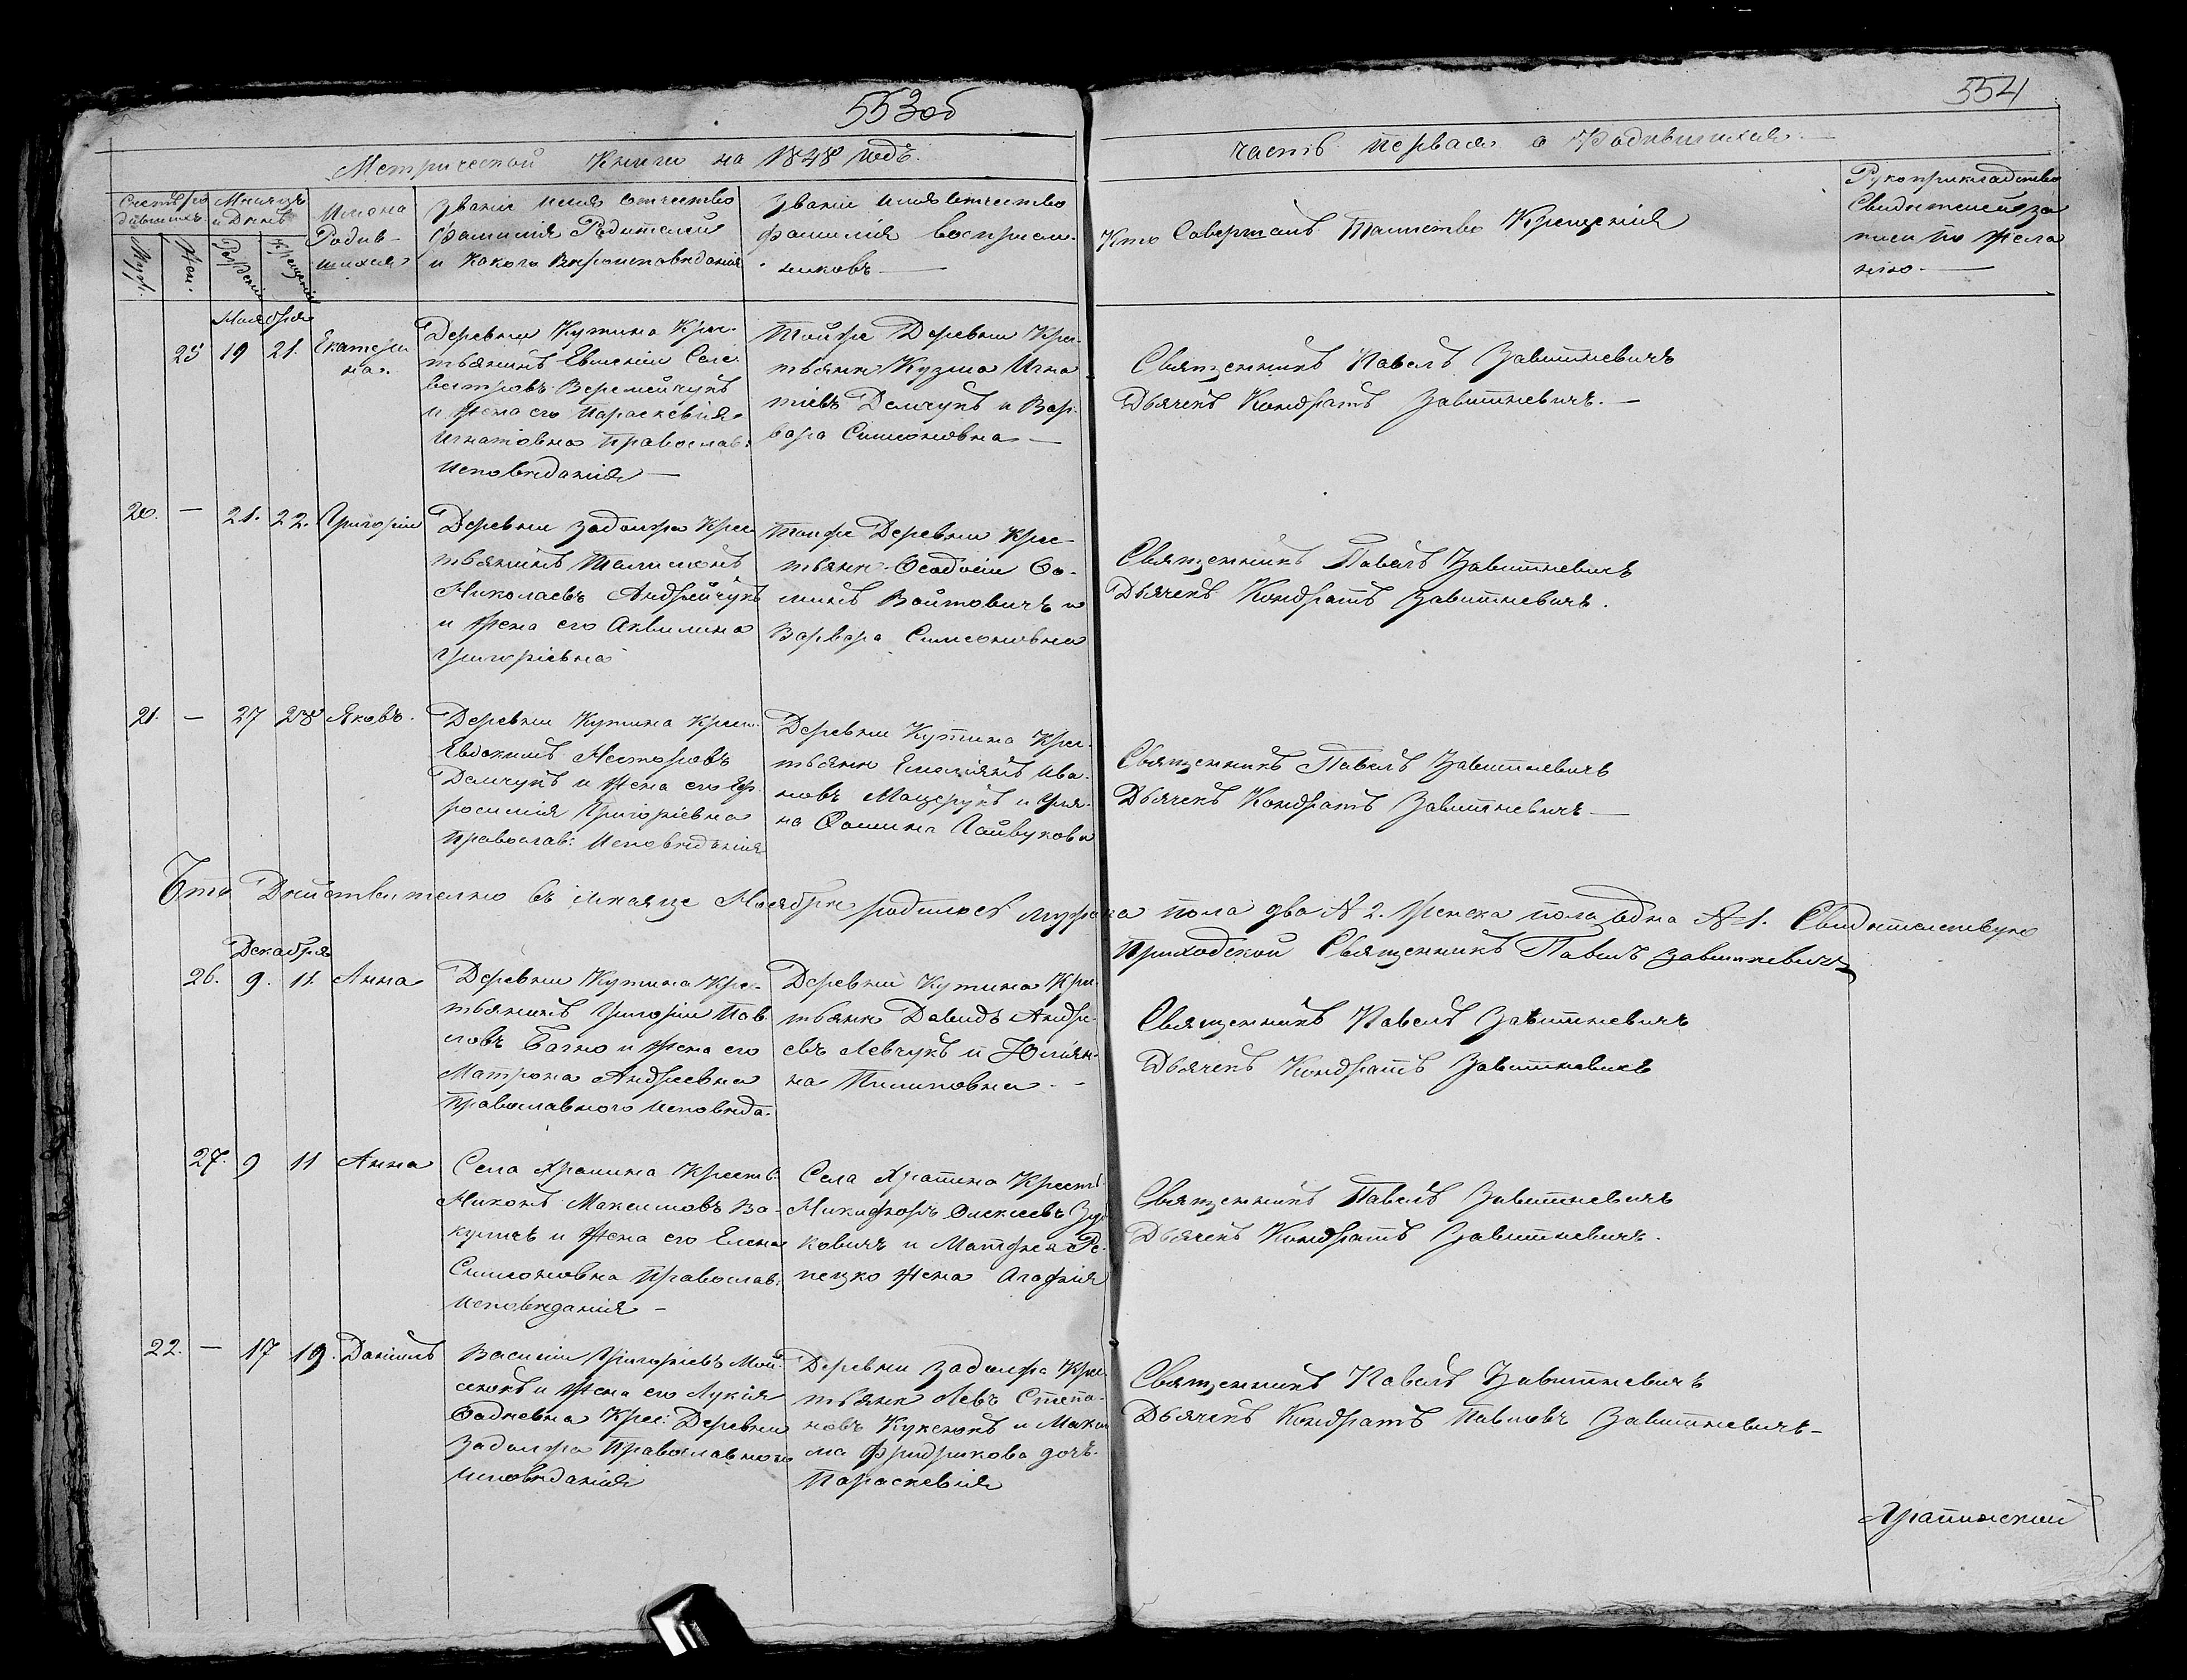 553об
554
Метрической Книги на 1848 годъ.
часть первая о Родившихся.
Счетъ ро
дившихъ
Мѣсяцъ
и День
Муж.
Жен.
Рожденія
Крещенія
Имена
Родив-
шихся
Званіе Имя Отчество
Фамилія Родителей
и Какого Вѣроисповѣданія
Званіе Имя Отчество
Фамилія воспріем-
никовъ —
Кто Совершалъ Таинство Крещенія
Рукоприкладство
Свидѣтелей за
писи по жела
нію. —
Ноября
25 19 21. Екатери
на.
Деревни Кутина Крес-
тьянинъ Евгеній Селе-
вестровъ Веремейчукъ
и жена его Параскевія
Игнатовна Православ:
Исповѣданія —
Тойже Деревни Крес-
тьянн Кузма Игна
тіевъ Демчукъ и Вар-
вара Симоновна —
Священникъ Павелъ Завитневичъ
Дьячекъ Кондратъ Завитневичъ. —
20. — 21. 22. Григорій
Деревни Задолжа Крес
тьянинъ
Николаевъ Андрейчукъ
и Жена его Акилина
Григоріевна
Тоиже Деревни Крес-
тьянн Ѳеодосій Ѳо-
минъ Войтовичъ и
Варвара Симоновна
Священникъ Павелъ Завитневичъ
Дьячекъ Кондратъ Завитневичъ.
21. — 27 28 Яковъ.
Деревни Кутина Крест.
Евдокимъ Несторовъ
Демчукъ и Жена его Еф
росинія Григоріевна
Православ: Исповѣданія
Деревни Кутина Крес-
тьянн Емеліянъ Ива-
новъ Мацерукъ и Улія-
на Ѳомина Гайвукова
Священникъ Павелъ Завитневичъ
Дьячекъ Кондратъ Завитневичъ —
Что Дѣйствительно въ мѣсяце Ноябрѣ родилось мужска пола два № 2. женска пола одна № 1. Свидѣтельствую
Приходской Священникъ Павелъ Завитневичъ
Декабря
26. 9. 11. Анна
Деревни Кутина Крес-
тьянинъ Григорій Пав
ловъ Багно и Жена его
Матрона Андреевна
Православного Исповѣда.
Деревни Кутина Крес-
тьянн Давидъ Андре-
евъ Левчукъ и Юліян-
на Пилиповна. -
Священникъ Павелъ Завитневичъ
Дьячекъ Кондратъ Завитневичъ
27. 9 11 Анна
Села Храпина Крестъ
Никонъ Максимовъ Ва-
куличъ и Жена его Елена
Симоновна Православ:
Исповѣданія —
Села Храпина Крестъ
Никифоръ Олексеевъ
ковичъ и Матфея Ре-
пецко жена Агафія
Священникъ Павелъ Завитневичъ
Дьячекъ Кондратъ Завитневичъ.
22. — 17 19. Даніилъ
Василій Григоріевъ Мой-
сеюкъ и Жена его Лукія
Фадеевна Крес: Деревни
Задолжа Православного
Исповѣданія
Деревни Задолжа Крес
тьянн Левъ Степа-
новъ Куксюкъ и Макси
ма Фридрикова дочь
Параскевія
Священникъ Павелъ Завитневичъ
Дьячекъ Кондратъ Павловъ Завитневичъ —
Храпинской